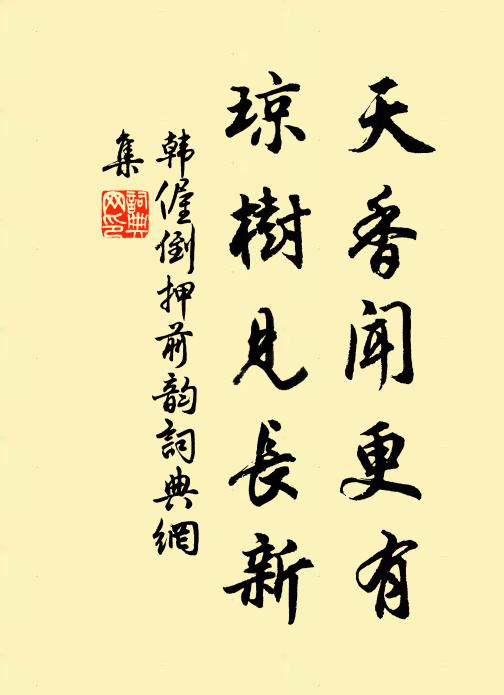 天香聞更有
琼樹見長新
韩偓倒押前韵詞典網
集
詞典
网印